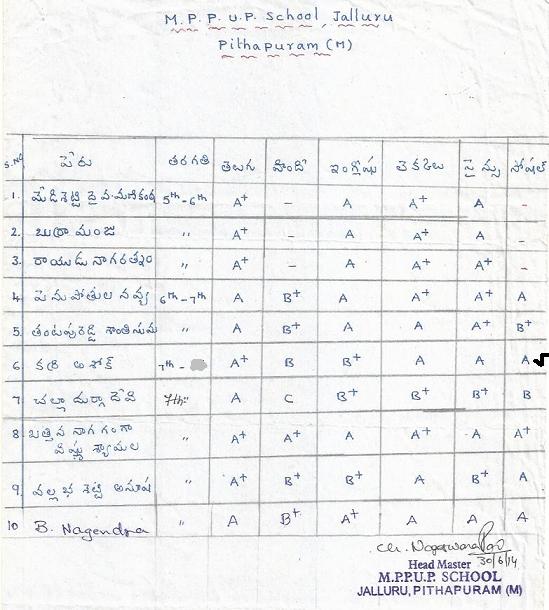 M.P.P.U.P. School, Jalluru
Pithapuram (M)
S.No పేరు తరగతి తెలుగు హిందీ ఇంగ్లీషు లెక్కలు సైన్సు సోషల్
1. మేడిశెట్టి దైవ మణికంఠ 5th-6th A+ - A A+ A -
2. బుర్రా మంజు " A+ - A A+ A -
3. రాయుడు నాగరత్నం " A+ - A A+ A+ -
4 పెనుపోతుల నవ్య 6th-7th A B+ A A+ A+ A
5. శాంతిసుమ " A B+ A A A+ B+
6 కర్రి అశోక్ 7th- A+ B B+ A A A
7 చల్లా దుర్గా దేవి 7th " A C B+ B+ B+ B
8 బత్తిన నాగ గంగా
విష్ణు శ్యామల " A+ A+ A A+ A A+
9. వల్లభశెట్టి అనూష " A+ B+ B+ A B+ A
10 B. Nagendra " A B+ A+ A A A
Ch. Nageswara Rao
30/6/14
Head Master
M.P.P.U.P. SCHOOL
JALLURU, PITHAPURAM (M)